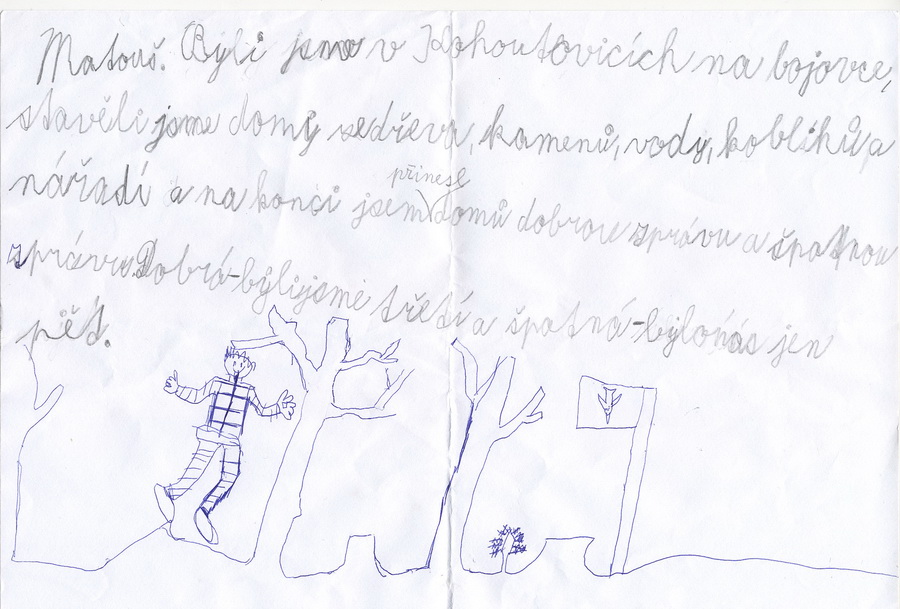 Matouš. Býli jsme v Kohoutovicích na bojovce,
stavěli jsme domý ze dřeva, kamenů, vody, koblihů a
nářadí a na konci jsem domů dobrou zprávu a špatnou
přinesl
zprávu. Dobrá-býli jsme třetí a špatná-býlo nás jen
pět.